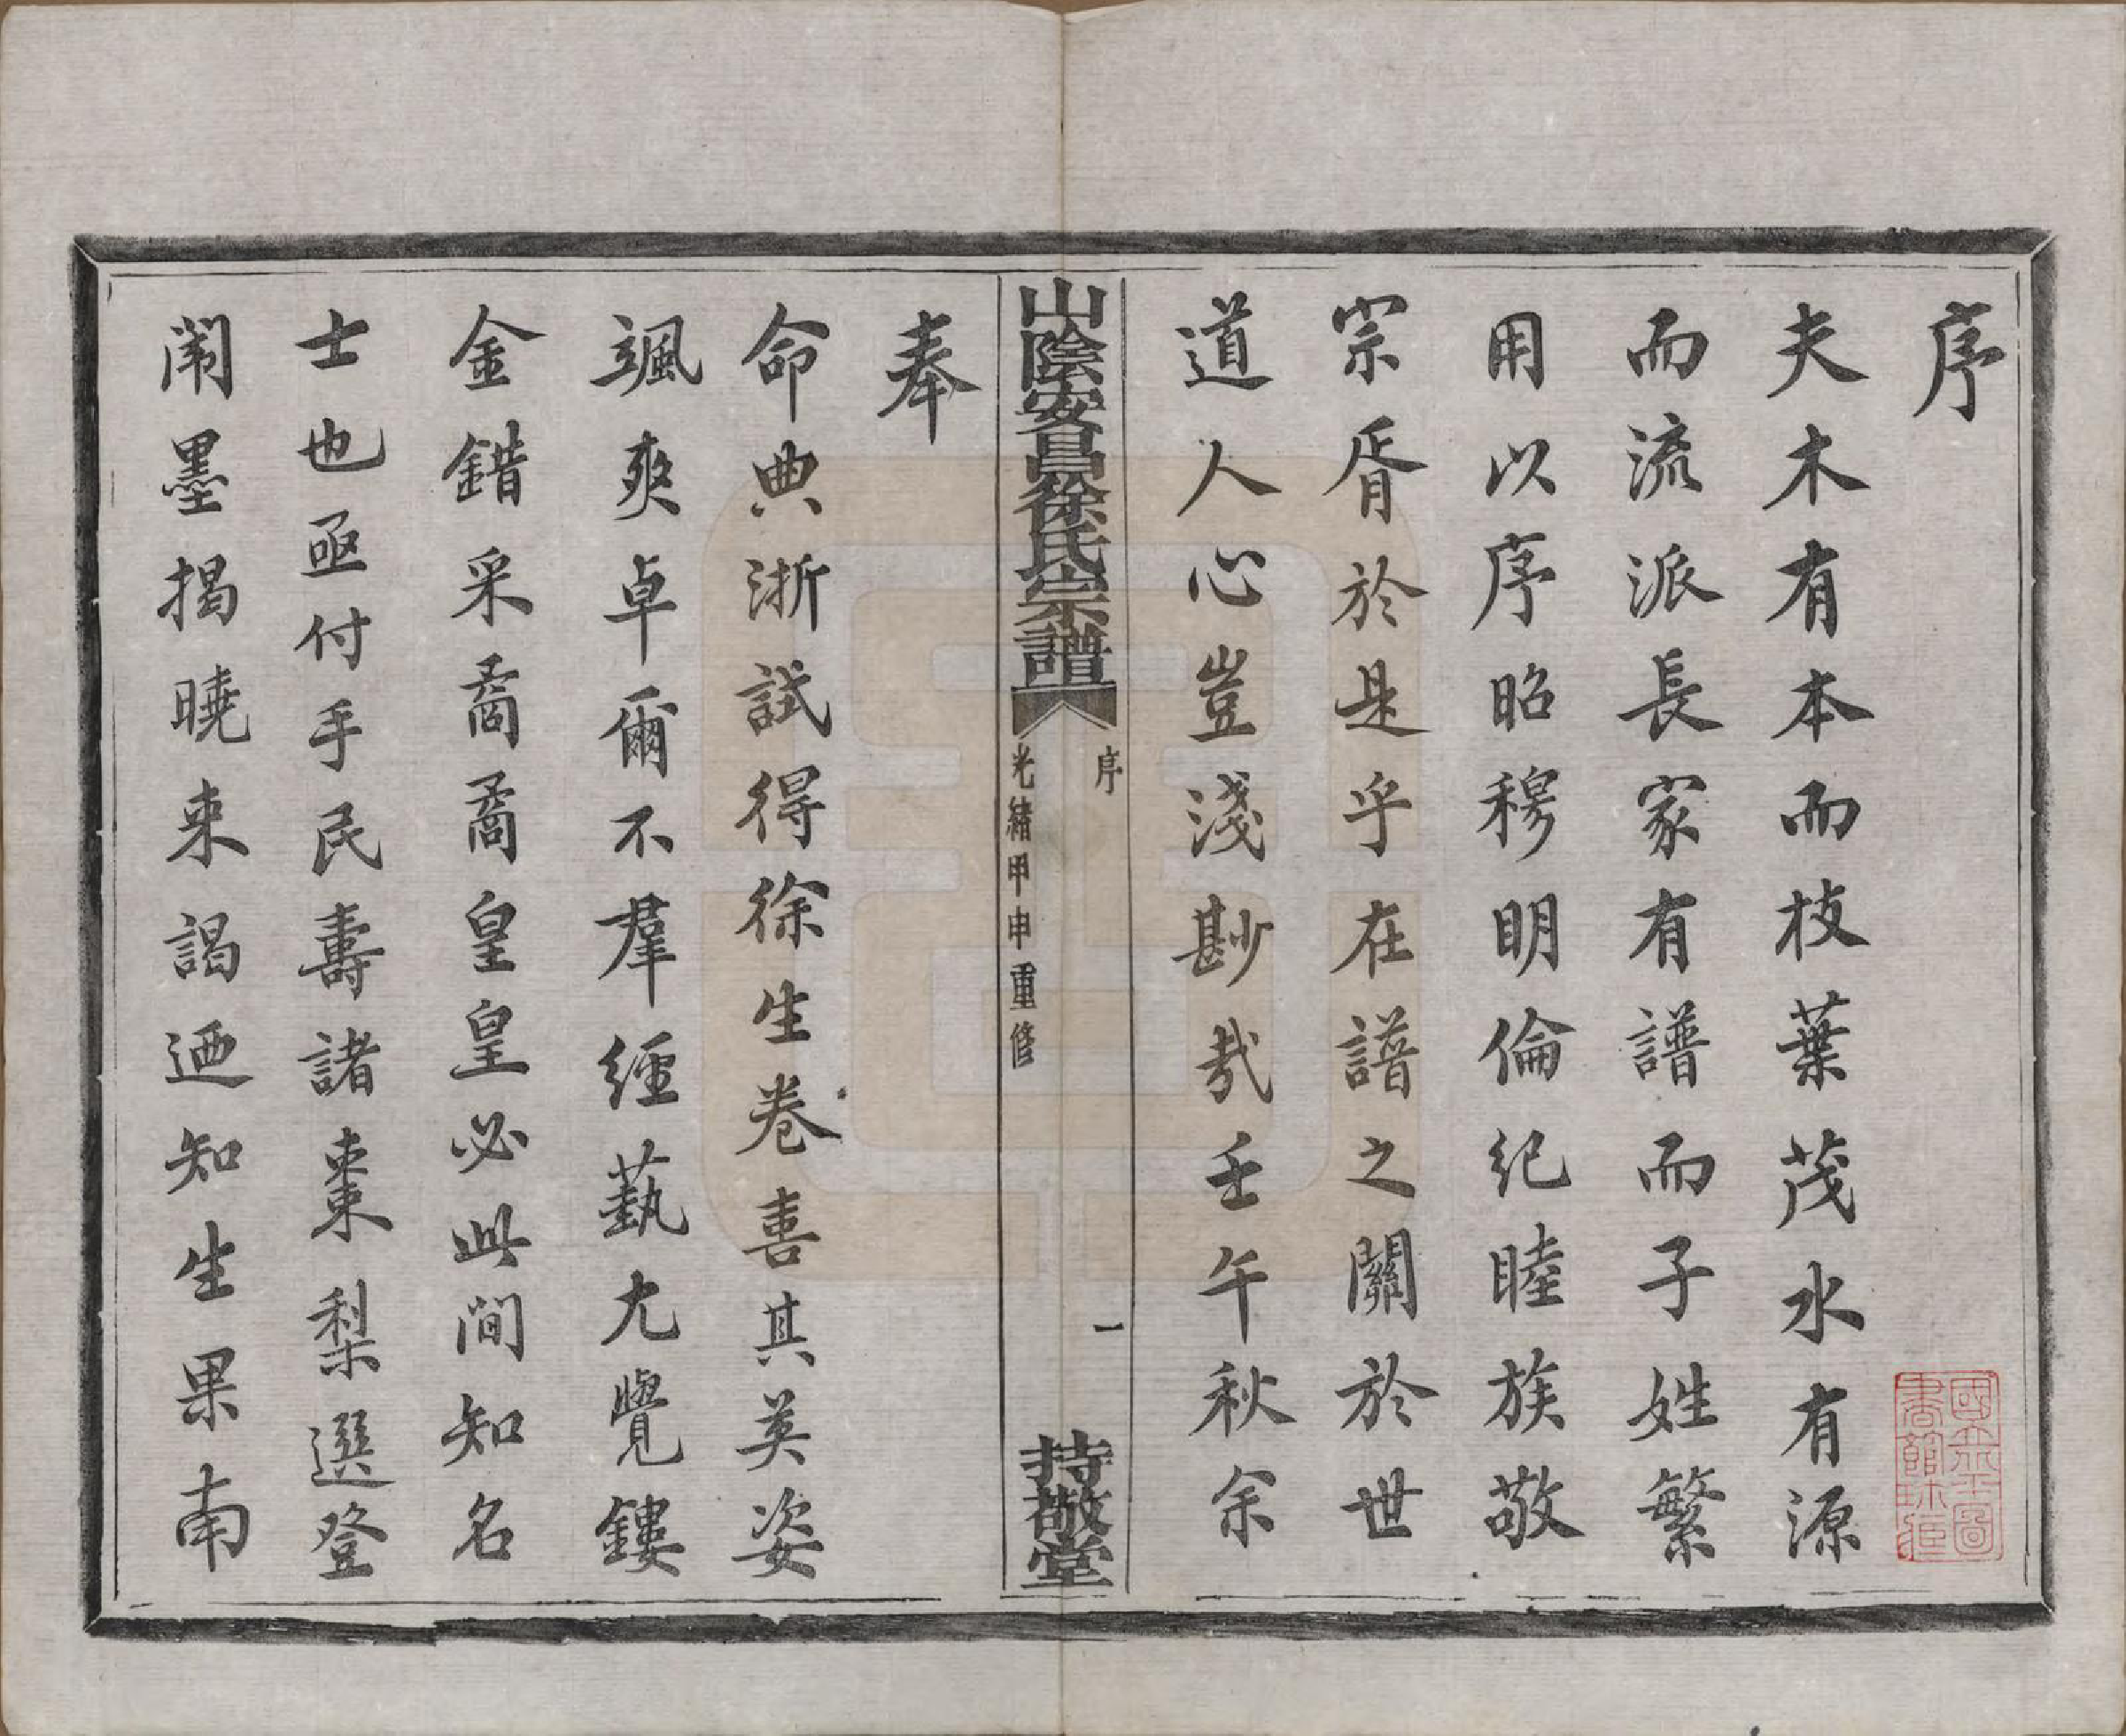 序
夫木有本而枝葉茂水有源
而流派長家有譜而子姓繁
用以序昭穆明倫紀睦族敬
宗胥於是乎在譜之關於世
道人心豈淺尠哉壬午秋余
山陰安昌徐氏宗譜
序
光緒甲申重修
一
持敬堂
奉
命典浙試得徐生卷喜其英姿
颯爽卓爾不羣經蓺尤覺鏤
金錯采矞矞皇皇必此間知名
士也亟付手民壽諸棗梨選登
闈墨揭曉来謁迺知生果南
國立北平圖
書館珍藏